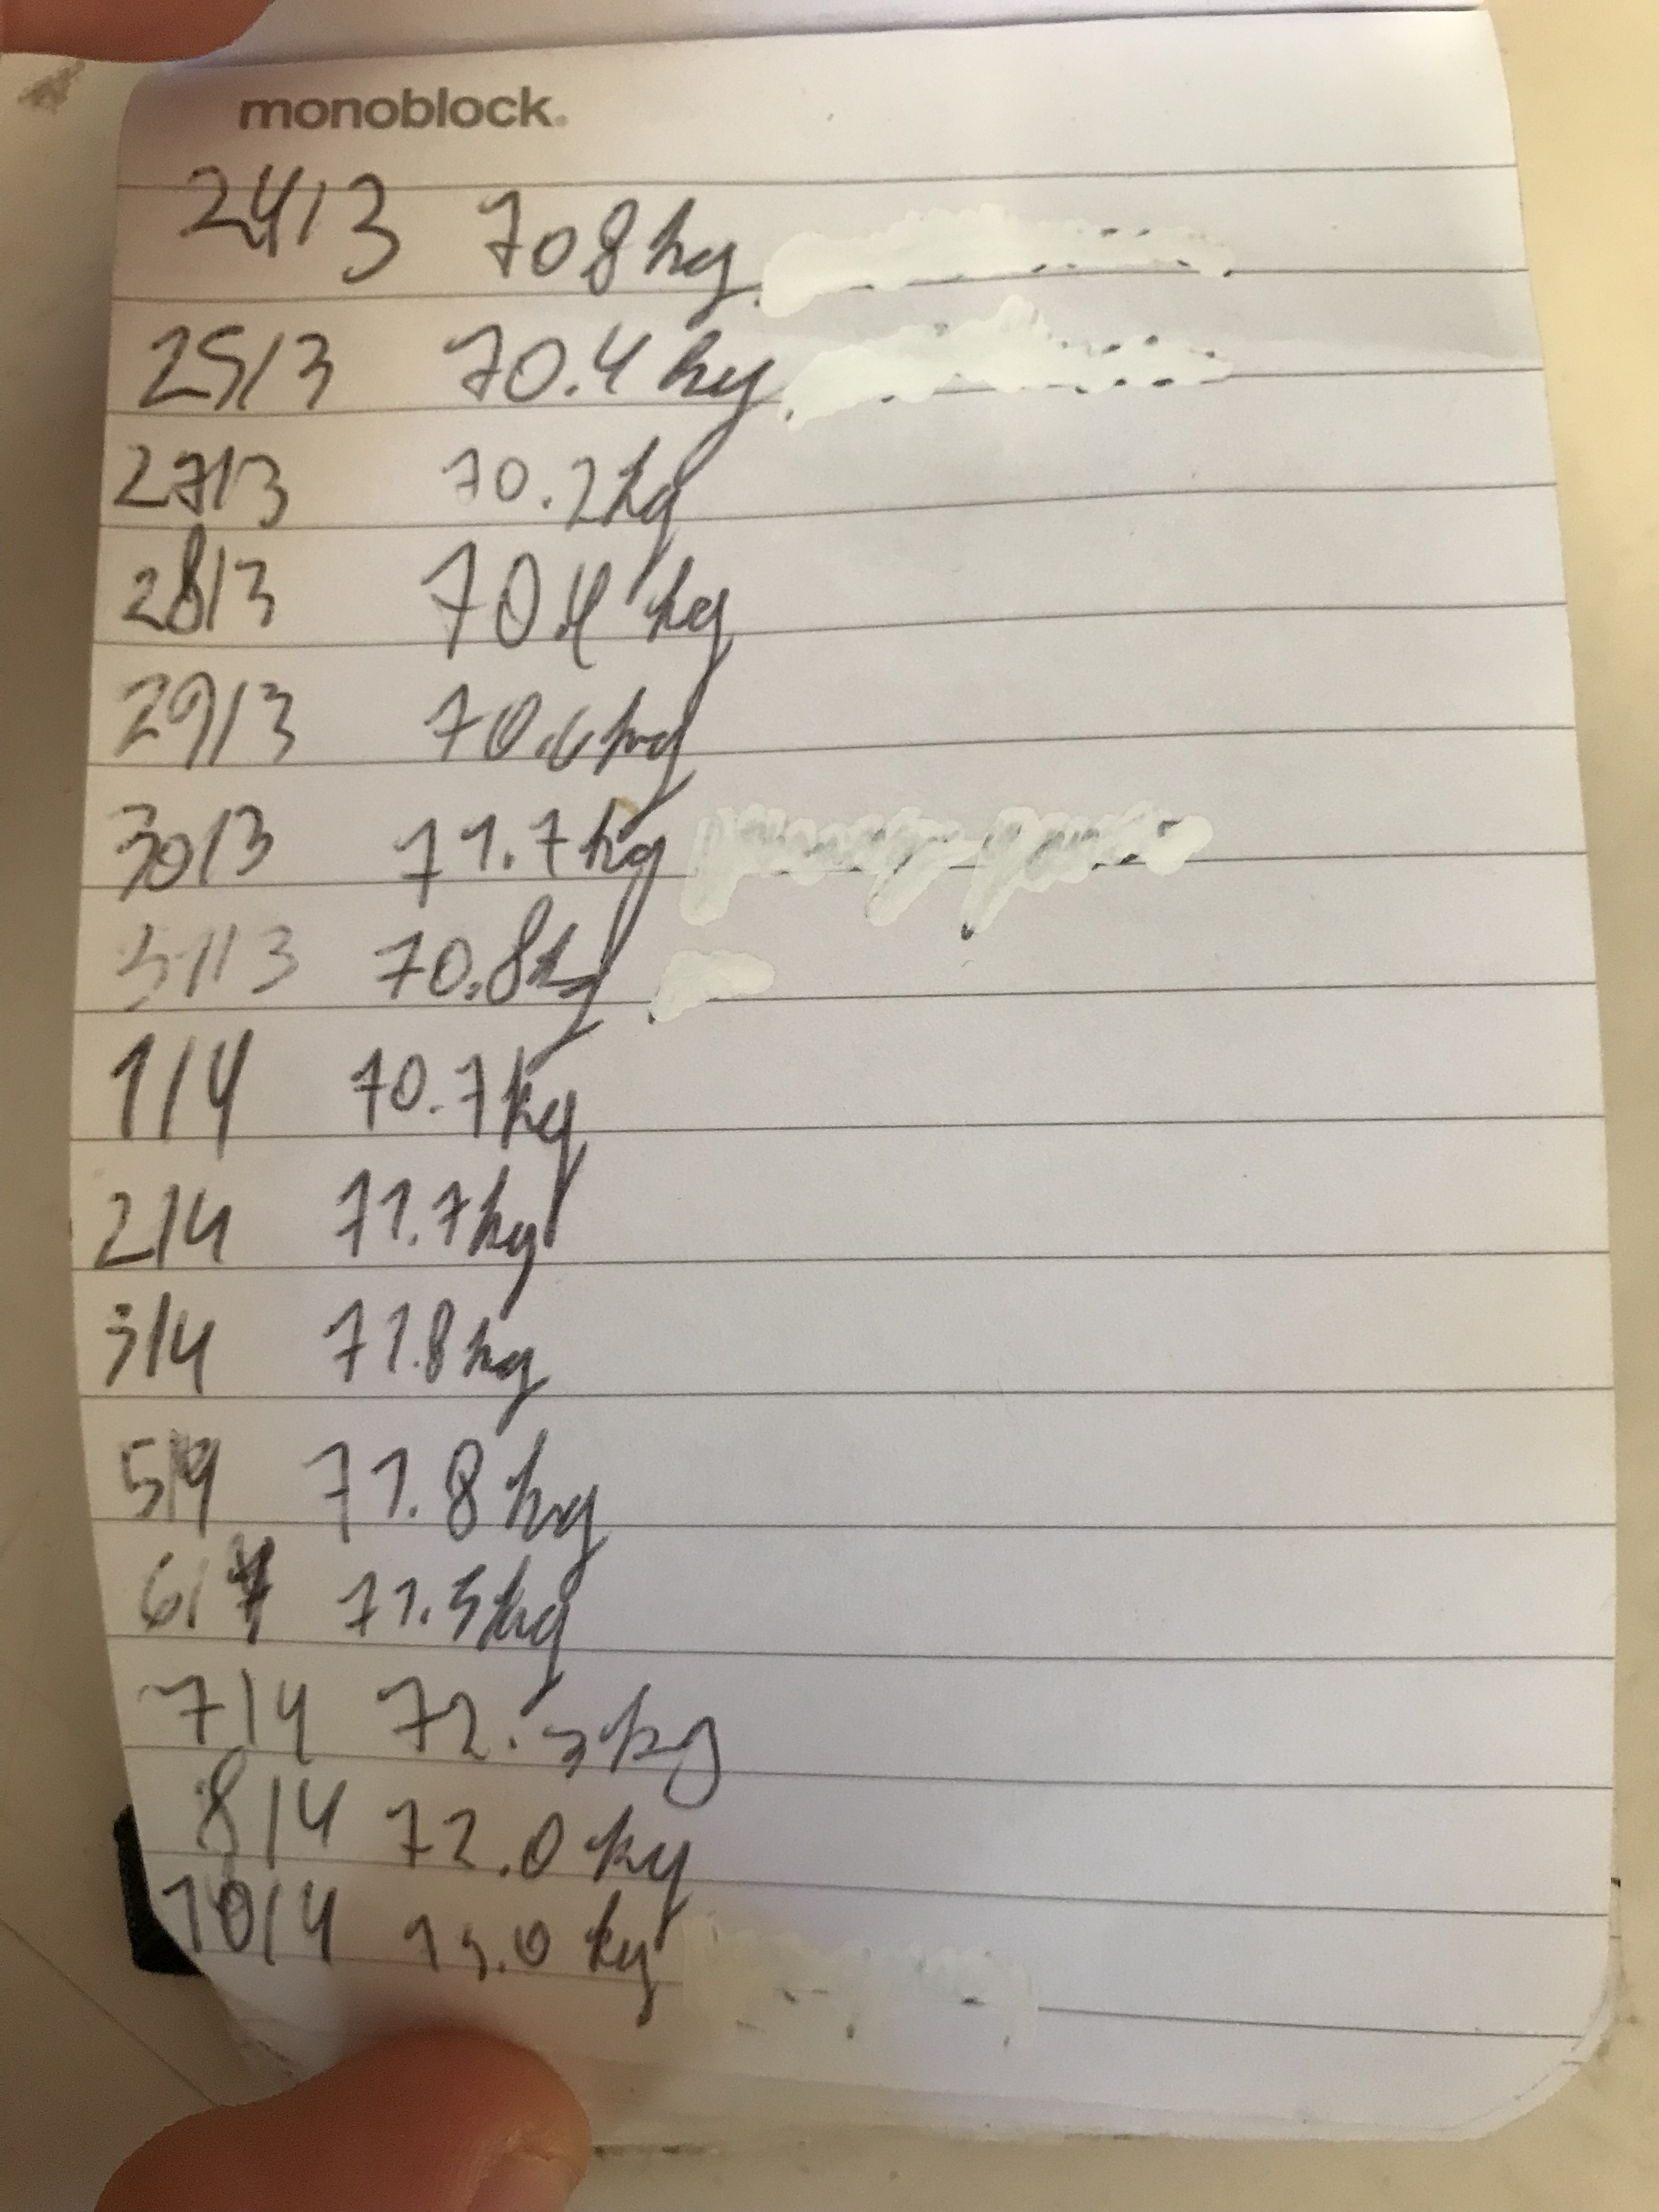 monoblock.
24/3 70.8 kg
25/3 70.4 kg
27/3 70.2 kg
28/3 70.4 kg
29/3 70.6 kg
30/3 71.7 kg
31/3 70.8 kg
1/4 70.7 kg
2/4 71.7 kg
3/4 71.8 kg
5/4 71.8 kg
6/4 71.5 kg
7/4 kg
8/4 72.0 kg
10/4 kg